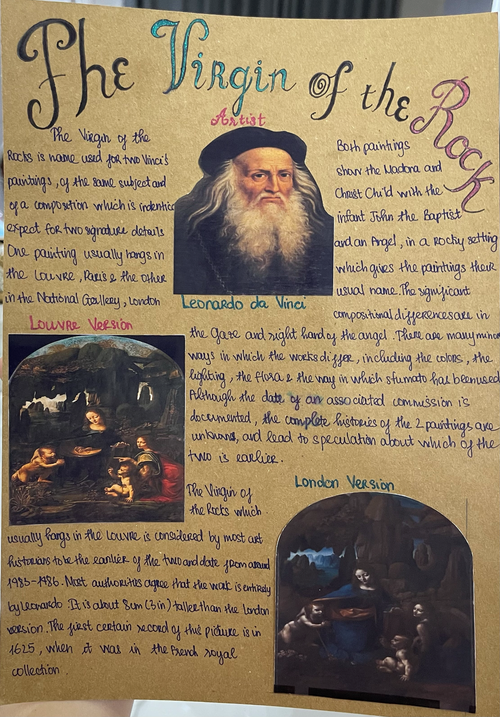 The Virgin of the Rock
Artist
The Virgin of the
Rocks is name used for two Vinci's
paintings, of the same subject and
of a composition which is indentic
expect for two signature details
One painting usually hangs in
the Louvre, Paris & the other
in the National Gallery, London
Leonardo da Vinci
Both paintings
show the Madona and
Christ Child with the
infant John the Baptist
and an Angel, in a rocky setting
which gives the paintings their
usual name. The significant
compositional differences are in
the gaze and right hand of the angel. There are many minor
ways in which the works differ, including the colors, the
lighting, the flora & the way in which sfumato has been used
Although the date of an associated commission is
documented, the complete histories of the 2 paintings are
unknown, and lead to speculation about which of the
two is earlier.
Louvre Version
The Virgin of
the Rocks which
usually hangs in the Louvre is considered by most art
historians to be the earlier of the two and date from around
1483-1486. Most authorities agree that the work is entirely
by Leonardo. It is about 8cm (3 in) taller than the London
version. The first certain record of this picture is in
1625, when it was in the French royal
collection.
London Version